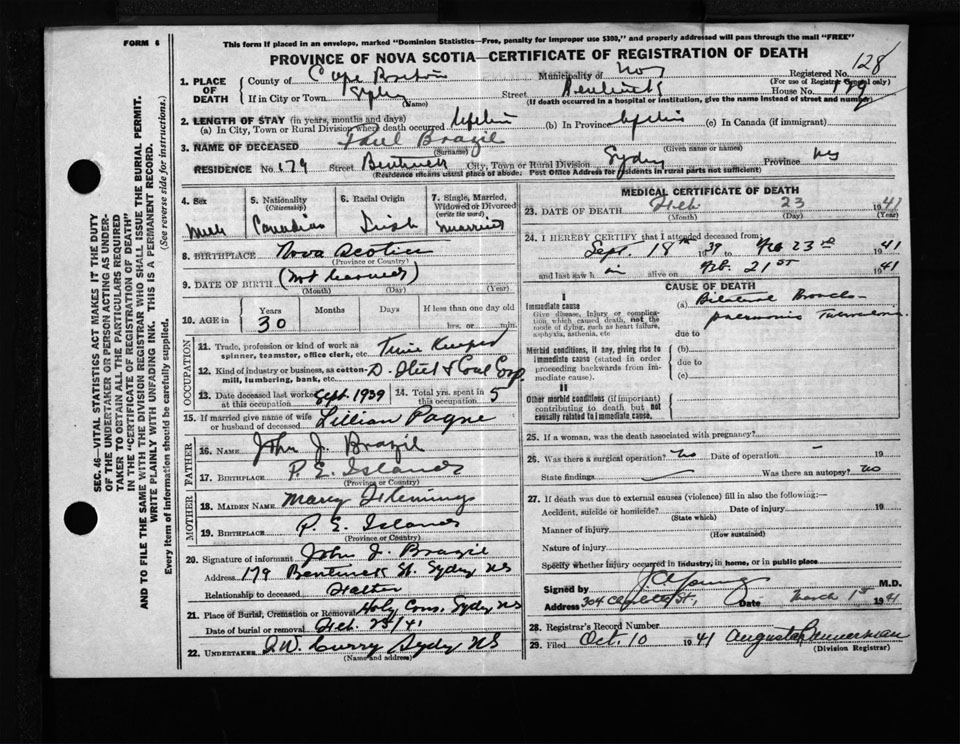 FORM 6
This form if placed in an envelope, marked "Dominion Statistics—Free, penalty for improper use $300," and properly addressed will pass through the mail "FREE"
PROVINCE OF NOVA SCOTIA—CERTIFICATE OF REGISTRATION OF DEATH
SEC. 46—VITAL STATISTICS ACT MAKES IT THE DUTY
OF THE UNDERTAKER OR PERSON ACTING AS UNDER-
TAKER TO OBTAIN ALL THE PARTICULARS REQUIRED
IN THE "CERTIFICATE OF REGISTRATION OF DEATH"
AND TO FILE THE SAME WITH THE DIVISION REGISTRAR WHO SHALL ISSUE THE BURIAL PERMIT.
WRITE PLAINLY WITH UNFADING INK. THIS IS A PERMANENT RECORD.
Every item of information should be carefully supplied. (See reverse side for instructions.)
1. PLACE OF DEATH
County of Cape Breton Municipality of Registered No. 128
(For use of Registrar General only)
If in City or Town Sydney (Name) Street Bentinck House No. 179
(If death occurred in a hospital or institution, give name instead of street and number)
2. LENGTH OF STAY (in years, months and days)
(a) In City, Town or Rural Division where death occurred lifetime (b) In Province lifetime (c) In Canada (if immigrant)
3. NAME OF DECEASED Paul Brazil
(Surname) (Given name or names)
RESIDENCE No. 179 Street Bentinck City, Town or Rural Division Sydney Province NS
(Residence means usual place of abode: Post Office Address for residents in rural parts not sufficient)
4. Sex
Male
5. Nationality (Citizenship)
Canadian
6. Racial Origin
Irish
7. Single, Married, Widowed or Divorced (write the word)
Married
8. BIRTHPLACE Nova Scotia
(Province or Country)
9. DATE OF BIRTH (Not learned)
(Month) (Day) (Year)
10. AGE in Years Months Days If less than one day
30 hrs. or min.
OCCUPATION
11. Trade, profession or kind of work as spinner, teamster, office clerk, etc. Time Keeper
12. Kind of industry or business, as cotton-mill, lumbering, bank, etc. D. Steel & Coal Corp.
13. Date deceased last worked at this occupation Sept. 1939
14. Total yrs. spent in this occupation 5
15. If married give name of wife or husband of deceased Lillian Payne
FATHER
16. NAME John J. Brazil
17. BIRTHPLACE P. E. Island
(Province or Country)
MOTHER
18. MAIDEN NAME Mary Flemings
19. BIRTHPLACE P. E. Island
(Province or Country)
20. Signature of informant John J. Brazil
Address 179 Bentinck St. Sydney NS
Relationship to deceased Father
21. Place of Burial, Cremation or Removal Holy Cross, Sydney NS
Date of burial or removal Feb. 25/41
22. UNDERTAKER J.W. Curry Sydney NS
(Name and address)
MEDICAL CERTIFICATE OF DEATH
23. DATE OF DEATH Feb 23 1941
(Month) (Day) (Year)
24. I HEREBY CERTIFY that I attended deceased from:
Sept. 18th 1939 to Feb 23rd 1941
and last saw him alive on Feb. 21st 1941
CAUSE OF DEATH
I
Immediate cause
Give disease, injury or complication which caused death, not the mode of dying, such as heart failure, asphyxia, asthenia, etc
(a) Bilateral Broncho-
pneumonic Tuberculosis
due to
Morbid conditions, if any, giving rise to immediate cause (stated in order proceeding backwards from immediate cause).
(b)
due to
(c)
II
Other morbid conditions (if important) contributing to death but not causally related to immediate cause.
25. If a woman, was the death associated with pregnancy?
26. Was there a surgical operation? No Date of operation — 19
State findings Was there an autopsy? No
27. If death was due to external causes (violence) fill in also the following:—
Accident, suicide or homicide? Date of injury 19
(State which)
Manner of injury
(How sustained)
Nature of injury
Specify whether injury occurred in industry, in home, or in public place
Signed by J. A. Young M.D.
Address 304 Charlotte St., Date March 1st 1941
28. Registrar's Record Number
29. Filed Oct. 10 1941 Augusta Bannerman
(Division Registrar)